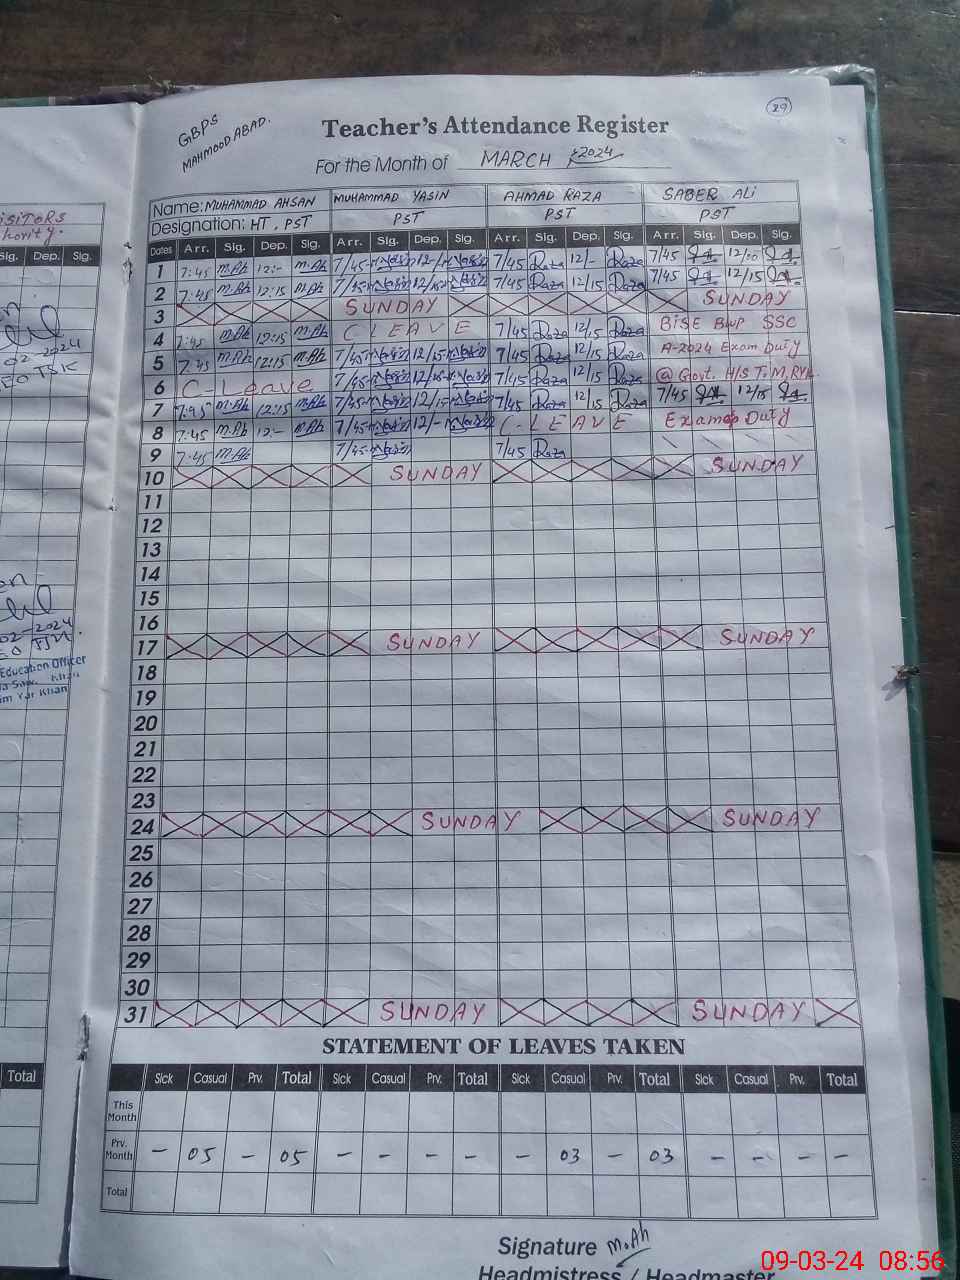 29
GBPS
MAHMOOD ABAD.
Teacher's Attendance Register
For the Month of MARCH 2024
Name: MUHAMMAD AHSAN MUHAMMAD YASIN AHMAD RAZA SABER ALi
Designation: HT, PST PST PST PST
Dates Arr. Sig. Dep. Sig. Arr. Sig. Dep. Sig. Arr. Sig. Dep. Sig. Arr. Sig. Dep. Sig.
1 7:45 M.Ah 12:- M.Ah 7/45 Yasin 12/- Yasin 7/45 Raza 12/- Raza 7/45 12/00
2 7:45 M.Ah 12:15 M.Ah 7/45 Yasin 12/15 Yasin 7/45 Raza 12/15 Raza 7/45 12/15
3 SUNDAY SUNDAY
4 7:45 M.Ah 12:15 M.Ah C LEAVE 7/45 Raza 12/15 Raza BiSE BWP SSC
5 7:45 M.Ah 12:15 M.Ah 7/45 Yasin 12/15 Yasin 7/45 Raza 12/15 Raza A-2024 Exam Duty
6 C-Leave 7/45 Yasin 12/15 Yasin 7/45 Raza 12/15 Raza @ Govt. H/S T.M, RYK
7 7:45 M.Ah 12:15 M.Ah 7/45 Yasin 12/15 Yasin 7/45 Raza 12/15 Raza 7/45 12/15
8 7:45 M.Ah 12:- M.Ah 7/45 Yasin 12/- Yasin C-LEAVE Exam Duty
9 7:45 M.Ah 7/45 Yasin 7/45 Raza
10 SUNDAY SUNDAY
11
12
13
14
15
16
17 SUNDAY SUNDAY
18
19
20
21
22
23
24 SUNDAY SUNDAY
25
26
27
28
29
30
31 SUNDAY SUNDAY
STATEMENT OF LEAVES TAKEN
Sick Casual Prv. Total Sick Casual Prv. Total Sick Casual Prv. Total Sick Casual Prv. Total
This Month
Prv. Month - 05 - 05 - - - - - 03 - 03 - - - -
Total
Signature M.Ah
Headmistress / Headmaster
09-03-24 08:56
ISITORS
hority.
Sig. Dep. Sig.
02-2024
02-2024
Education Officer
im Yar Khan
Total